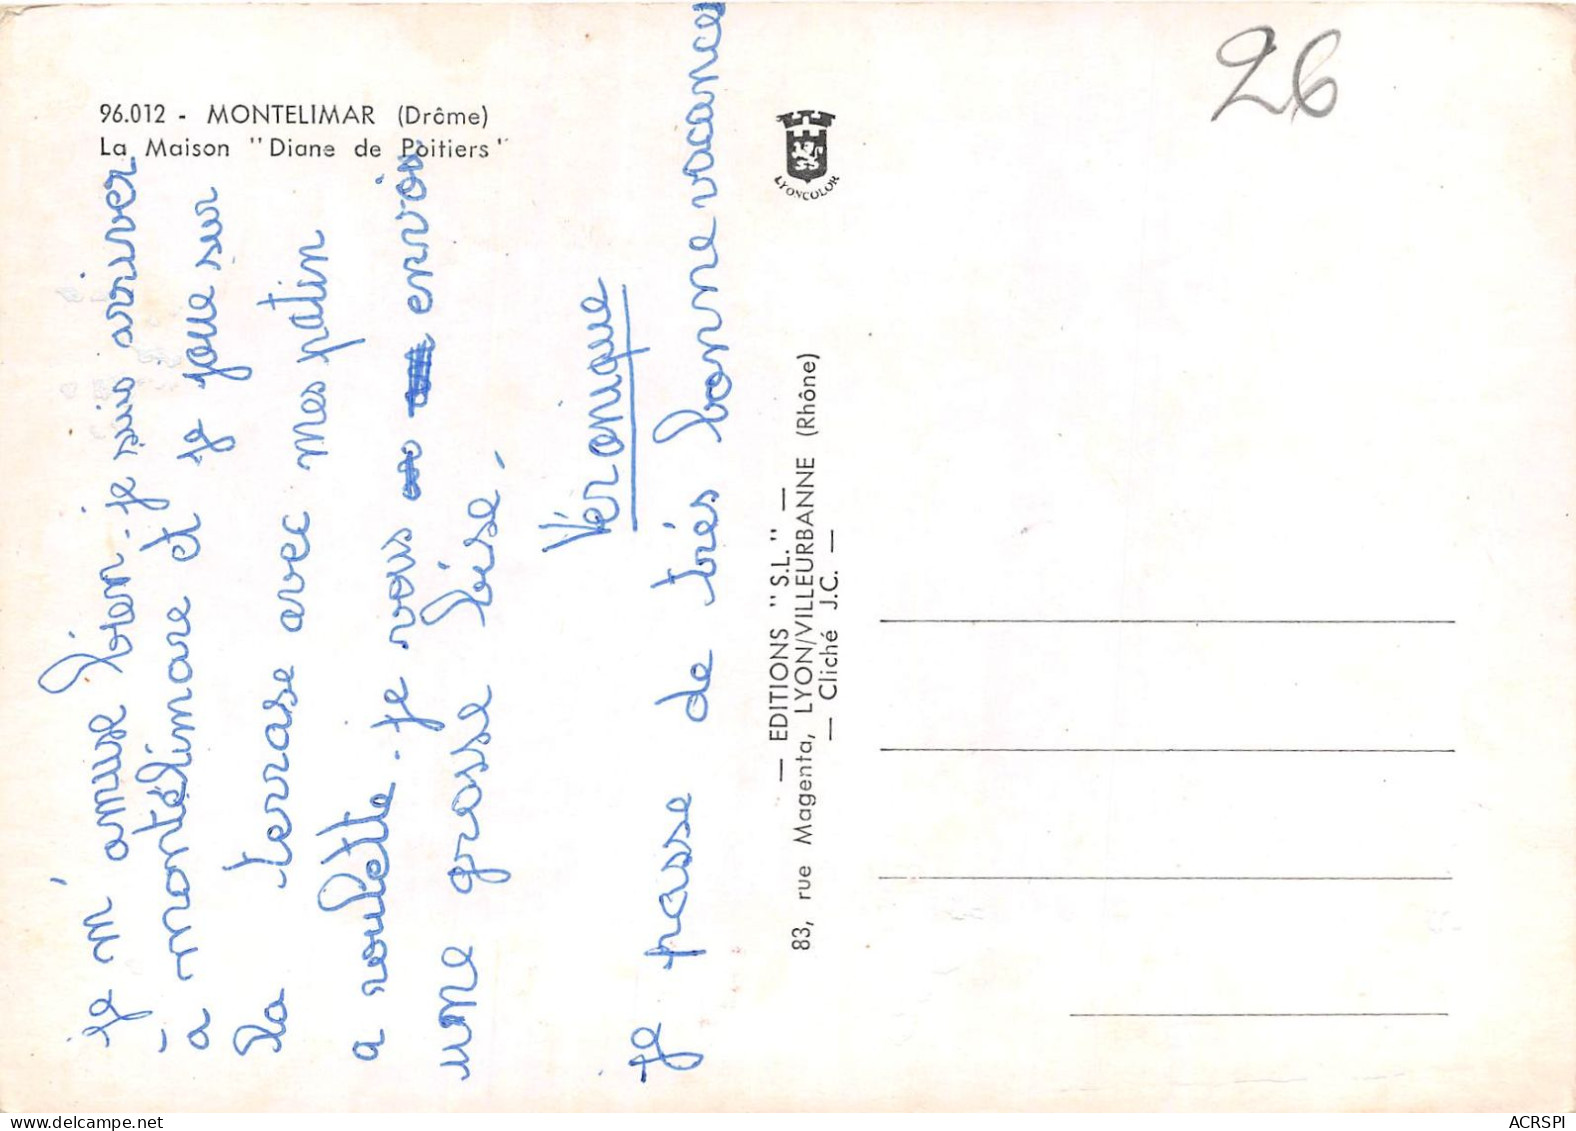 96.012 - MONTELIMAR (Drôme)
La Maison "Diane de Poitiers"
je m'amuse bien. je suis arriver
à montélimare et je joue sur
la terrase avec mes patin
a roulette. je vous envoi
une grosse bise.
Véronique
je passe de trés bonne vacance
LYONCOLOR
— EDITIONS "S.L." —
83, rue Magenta, LYON/VILLEURBANNE (Rhône)
— Cliché J.C. —
26
ACRSPI